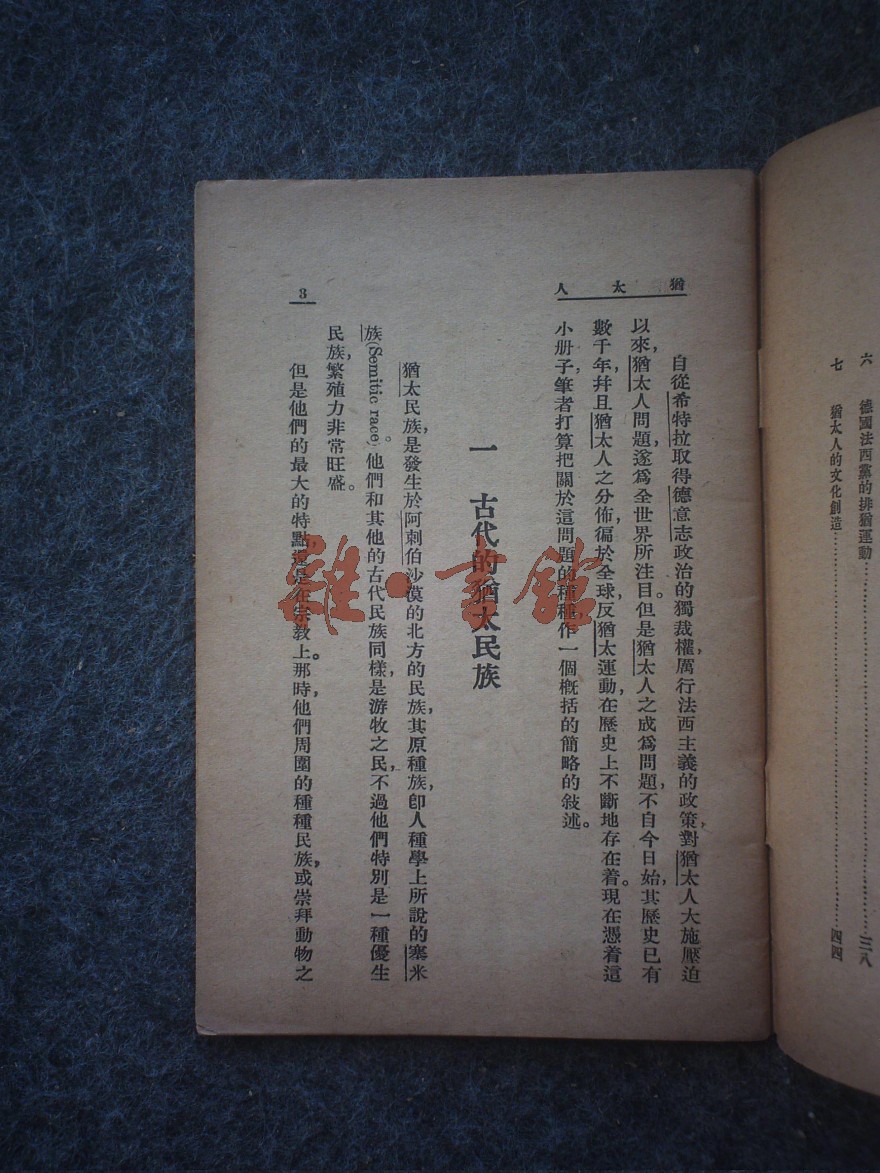 六　德國法西黨的排猶運動…………………三八
七　猶太人的文化創造…………………四四
猶太人
自從希特拉取得德意志政治的獨裁權，厲行法西主義的政策，對猶太人大施壓迫
以來，猶太人問題遂爲全世界所注目。但是猶太人之成爲問題，不自今日始，其歷史已有
數千年，幷且猶太人之分佈，徧於全球，反猶太運動，在歷史上不斷地存在着。現在憑着這
小册子，筆者打算把關於這問題的種種作一個槪括的簡略的敍述。
一　古代的猶太民族
猶太民族，是發生於阿剌伯沙漠的北方的民族，其原種族，卽人種學上所說的塞米
族(Semitic race)。他們和其他的古代民族同樣，是游牧之民，不過他們特別是一種優生
民族，繁殖力非常旺盛。
但是他們的最大的特點，還是在宗教上。那時，他們周圍的種種民族，或崇拜動物之
3
雜·書館